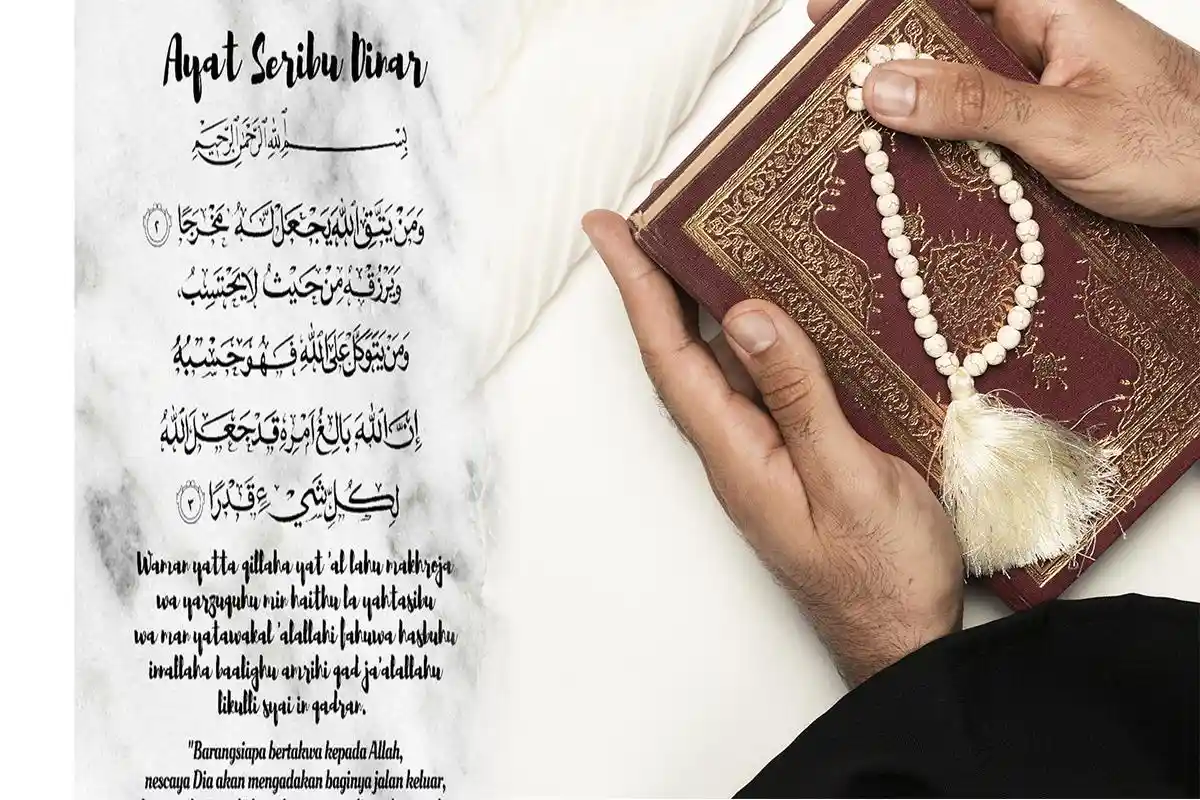 Ayat Seribu Dinar
بِسْمِ اللَّهِ الرَّحْمَٰنِ الرَّحِيمِ
وَمَنْ يَتَّقِ اللَّهَ يَجْعَلْ لَهُ مَخْرَجًا ٢
وَيَرْزُقْهُ مِنْ حَيْثُ لَا يَحْتَسِبُ
وَمَنْ يَتَوَكَّلْ عَلَى اللَّهِ فَهُوَ حَسْبُهُ
إِنَّ اللَّهَ بَالِغُ أَمْرِهِ قَدْ جَعَلَ اللَّهُ
لِكُلِّ شَيْءٍ قَدْرًا ٣
Waman yatta qillaha yat 'al lahu makhroja
wa yarzuquhu min haithu la yahtasibu
wa man yatawakal 'alallahi fahuwa hasbuhu
innallaha baalighu amrihi qad ja'alallahu
likulli syai in qadran.
"Barangsiapa bertakwa kepada Allah,
nescaya Dia akan mengadakan baginya jalan keluar,